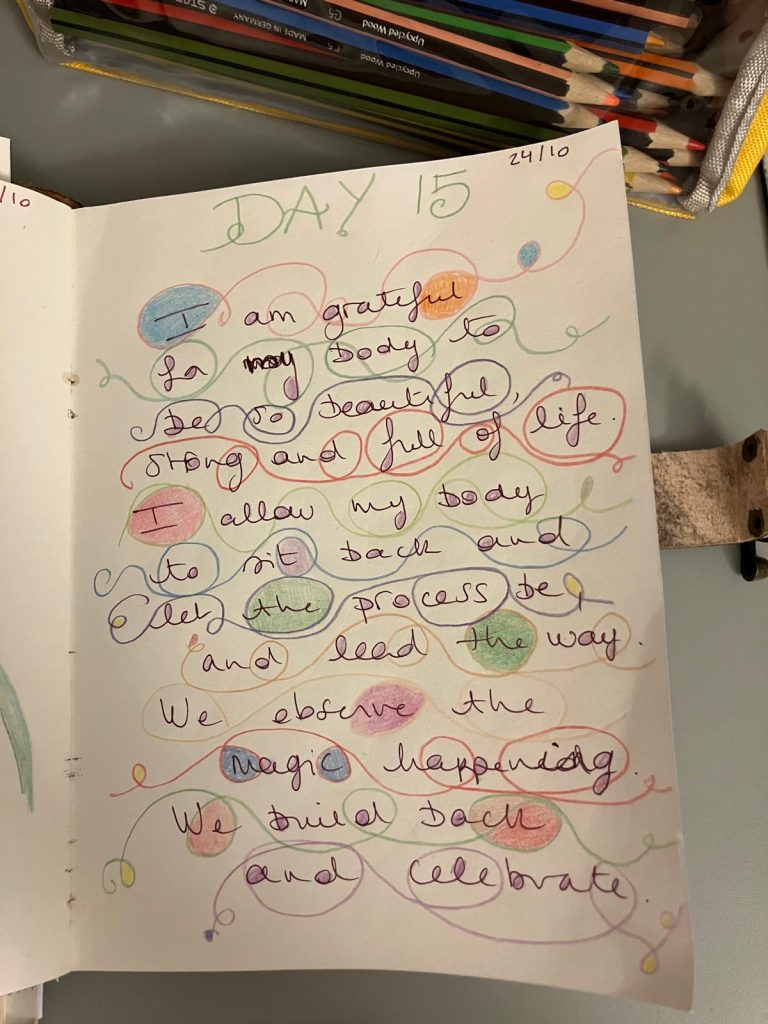 MADE IN GERMANY
Upcycled Wood
MADE IN GERMANY
Upcycled Wood
Upcycled Wood
/10
24/10
DAY 15
I am grateful
for my body to
be so beautiful,
strong and full of life.
I allow my body
to sit back and
let the process be,
and lead the way.
We observe the
magic happening.
We build back
and celebrate.